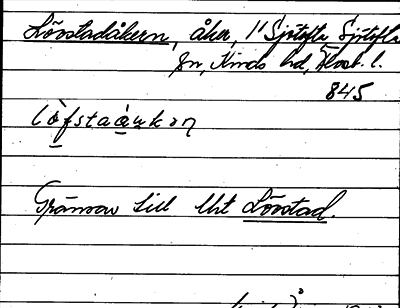 Lövstadåkern, åker, 1¹ Sjötofta Sjötofta
sn, Kinds hd, Älvsb. l.
845
lò̱fstaå̱u̱kən
Gränsar till Uht Lövstad.